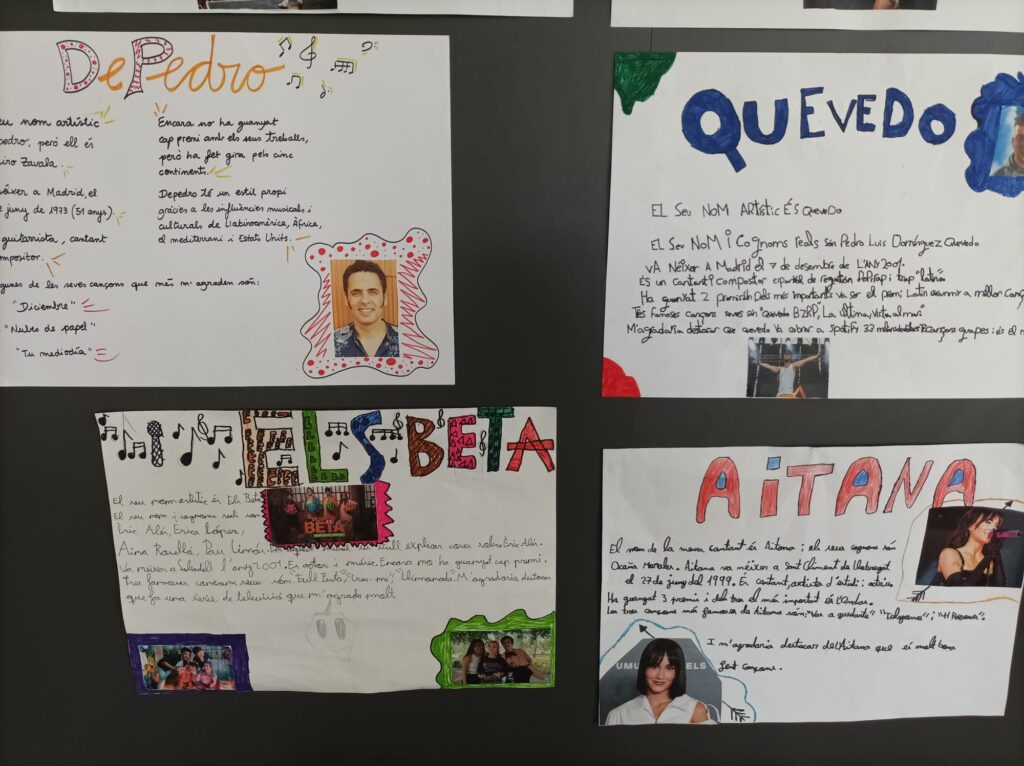 DePedro
eu nom artístic
pedro, però ell és
Zavala.
néixer a Madrid, el
juny de 1973 (51 anys).
guitarrista, cantant
compositor.
gunes de les seves cançons que més m'agraden són:
"Diciembre"
"Nubes de papel"
"Tu mediodía"
Encara no ha guanyat
cap premi amb els seus treballs,
però ha fet gira pels cinc
continents.
Depedro té un estil propi
gràcies a les influències musicals i
culturals de Llatinoamèrica, Àfrica,
el mediterrani i Estats Units.
QUEVEDO
EL SEU NOM ARTÍSTIC ÉS QUEVEDO
EL SEU NOM i COGNOMS reals són Pedro Luis Domínguez Quevedo
VA NÉIXER A Madrid el 7 de desembre de L'ANY 2001.
ÉS un CANTANT i compositor de regeton POP, rap i trap "llatin"
Ha guanyat 2 premis dels més importants va ser el premi Latin a millor canç
Tes famoses cançons seves són "Quevedo BZRP", "La última", "Vista al mar"
M'agradaria destacar que quevedo va cobrar a Spotify 33 cançons guapes i és el m
ELS BETA
El seu nom artístic és Els Beta
El seu nom i cognoms reals són
Èric Alés, Erica López,
Aina Roselló, Pau explicar coses sobre Èric Alés.
Va néixer a Sabadell l'any 2001. És actor i músic. Encara no ha guanyat cap premi.
tres famoses cançons seves són "Full , "Llimonada". M'agradaria destacar
que fa una serie de televisió que m'agrada molt.
BETA
AiTANA
El nom de la meva cantant és Aitana i els seus cognoms són
Ocaña Morales. Aitana va néixer a Sant Climent de Llobregat
el 27 de juny del 1999. És cantant, artista d'estudi i actriu
Ha guanyat 3 premis i dels tres el més important és L'Ondas.
Les tres cançons més famoses de Aitana són: "Vas a quedarte" "Teléfono" i "11 Razones".
I m'agradaria destacar de L'Aitana que és molt bona
fent cançons.
UMU ELS